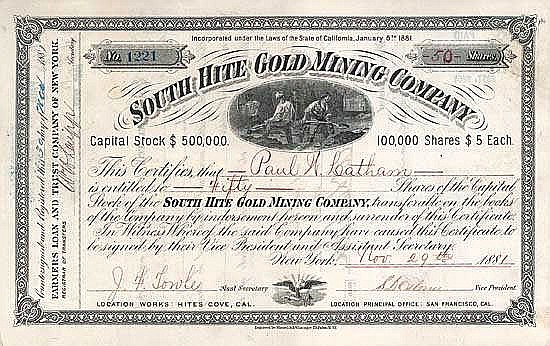 Incorporated under the Laws of the State of California, January 8th 1881.
No. 1221
-50- Shares
SOUTH HITE GOLD MINING COMPANY
Capital Stock $ 500,000.
100,000 Shares $ 5 Each.
This Certifies that Paul A. Latham
is entitled to Fifty Shares of the Capital
Stock of the SOUTH HITE GOLD MINING COMPANY, transferable on the books
of the Company by indorsement hereon and surrender of this Certificate.
In Witness Whereof the said Company have caused this Certificate to
be signed by their Vice President and Assistant Secretary.
New York Nov. 29th 1881
Asst Secretary
Vice President
LOCATION WORKS: HITES COVE, CAL.
LOCATION PRINCIPAL OFFICE: SAN FRANCISCO, CAL.
Countersigned and Registered this day of 188
FARMERS LOAN AND TRUST COMPANY OF NEW YORK.
REGISTRAR OF TRANSFERS
Secretary